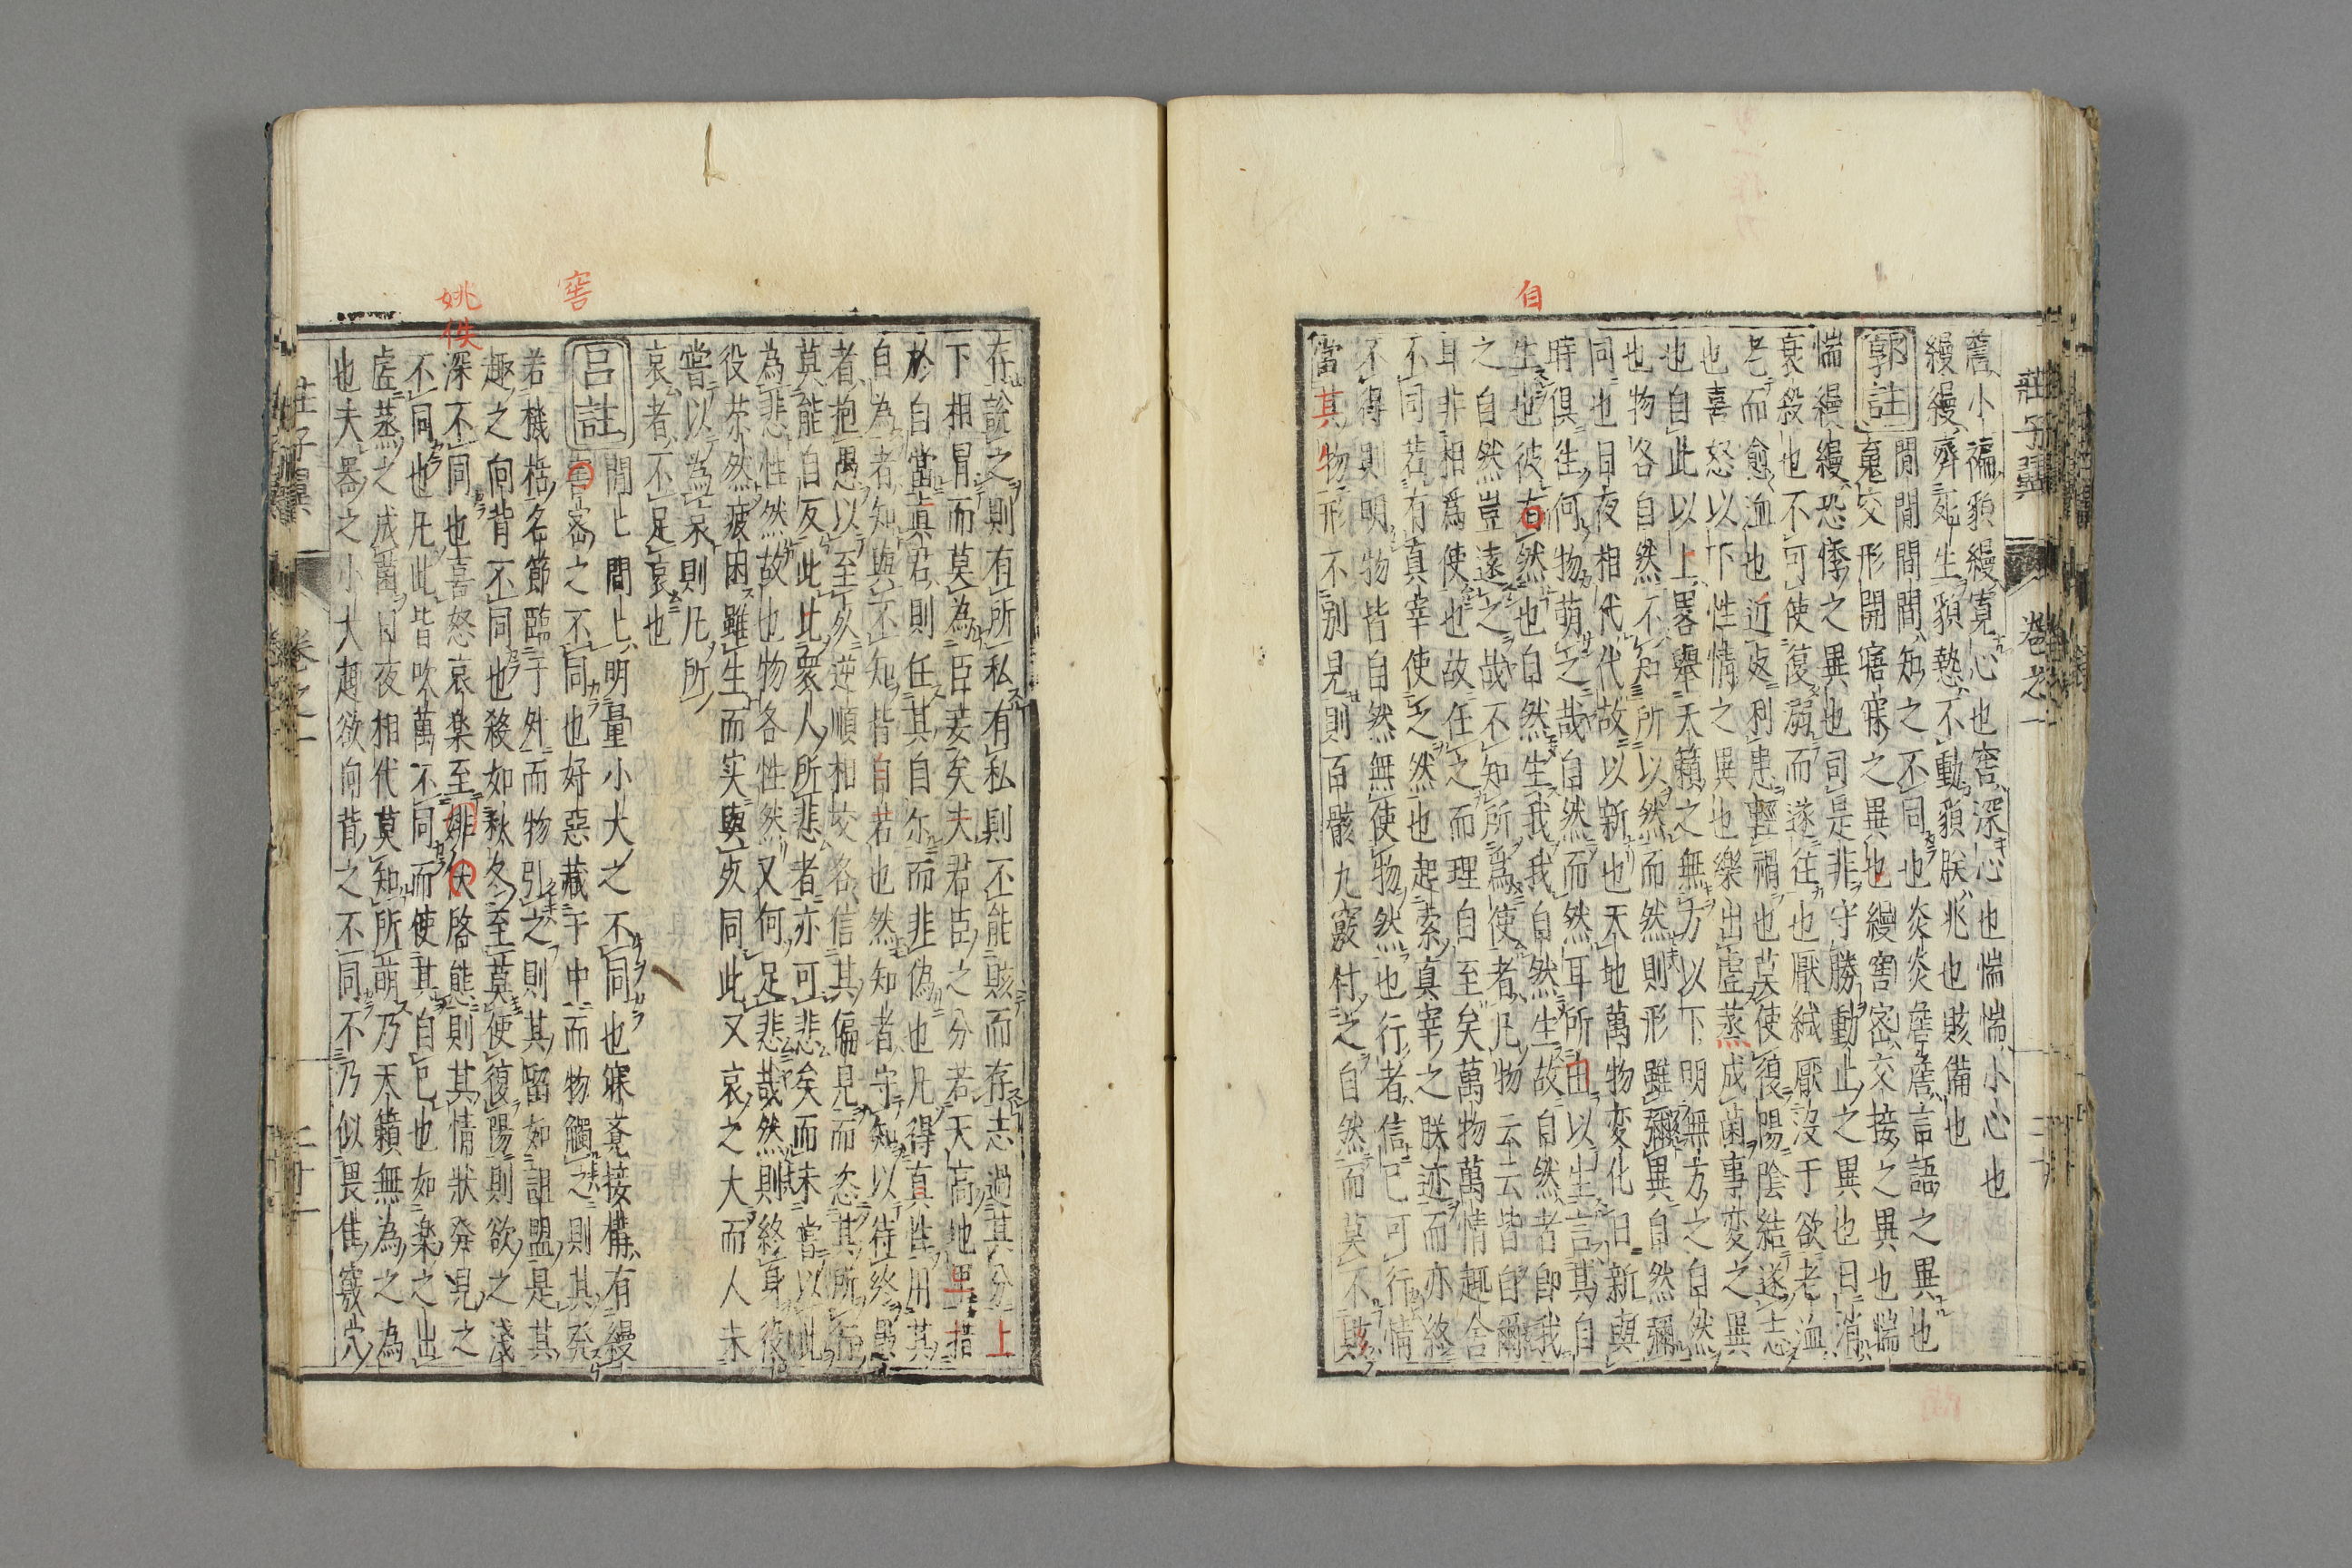 莊子翼 卷之一
詹小褊貌縵寛心也窖深心也惴惴小心也
縵縵齊死生貌慹不動貌朕兆也賅備也
郭註 閒閒間間知之不同也炎炎詹詹言語之異也
䰟交形開寤寐之異也縵窖密交接之異也惴
惴縵縵恐悸之異也司是非守勝動止之異也日消
衰殺也不可使復溺而遂往也厭緘厭沒于欲老洫
老而愈洫也近死利患輕禍也莫使復陽陰結遂志
也喜怒以下性情之異也樂出虛蒸成菌事変之異
也自此以上畧舉天籟之無方以下明無方之自然
也物各自然不知所以然而然則形雖彌異自然彌
同也日夜相代代故以新也天地萬物変化日新與
時俱往何物萌之哉自然而然耳所由以生言其自
生也彼自然也自然生我我自然生故自然者即我
之自然豈遠之哉不知所為使者凡物云云皆自爾
耳非相為使也故任之而理自至矣萬物萬情趣舍
不同若有真宰使之然也起索真宰之朕迹而亦終
不得則明物皆自然無使物然也行者信己可行情
當其物形不別見則百骸九竅付之自然而莫不賅
自
存說之則有所私有私則不能賅而存志過其分上
下相冒而莫為臣妾矣夫君臣之分若天高地卑措
於自當真君則任其自尔而非偽也凡得真性用其
自為者知與不知皆自若也然知者守知以待終愚
者抱愚以至死逆順相交各信其偏見而恣其所行
莫能自反此比衆人所悲者亦可悲矣而未嘗以此
為悲性然故也物各性然又何足悲哉然則終身役
役苶然疲困雖生而実與死同此又哀之大而人未
嘗以為哀則凡所
哀者不足哀也
呂註 閒閒間間明量小大之不同也寐覚接構有縵
窖密之不同也好惡藏于中而物觸之則其発
若機栝名節臨于外而物引之則其留如詛盟是其
趣之向背不同也殺如秋冬至莫使復陽則欲之淺
深不同也喜怒哀楽至姚佚啓態則其情狀発見之
不同也凡此皆吹萬不同而使其自已也如楽之出
虛蒸之成菌日夜相代莫知所萌乃天籟無為之為
也夫器之小大趣欲向背之不同不乃似畏隹竅穴
窖
姚佚
莊子翼 卷之一 二十二